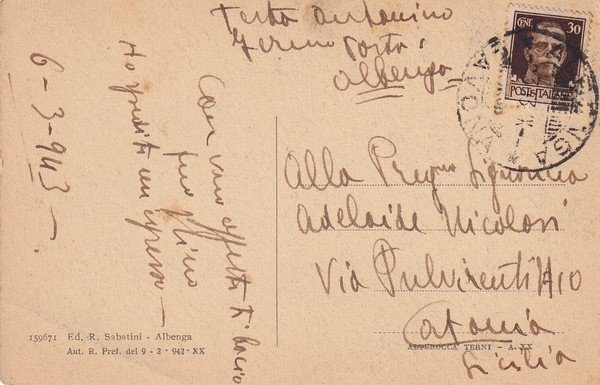 Testa Antonino
Fermo Posta
Albenga
CENT. 30
POSTE ITALIANE
6-3-943-
Ho spedito un espresso-
Con vivo affetto ti bacio
tuo Nino
Alla Preg.ma Signorina
Adelaide Nicolosi
Via Pulvirenti N10
Catania
Sicilia
159671 Ed. R. Sabatini - Albenga
Aut. R. Pref. del 9 - 2 - 942 - XX
ALTEROCCA TERNI - A. XX